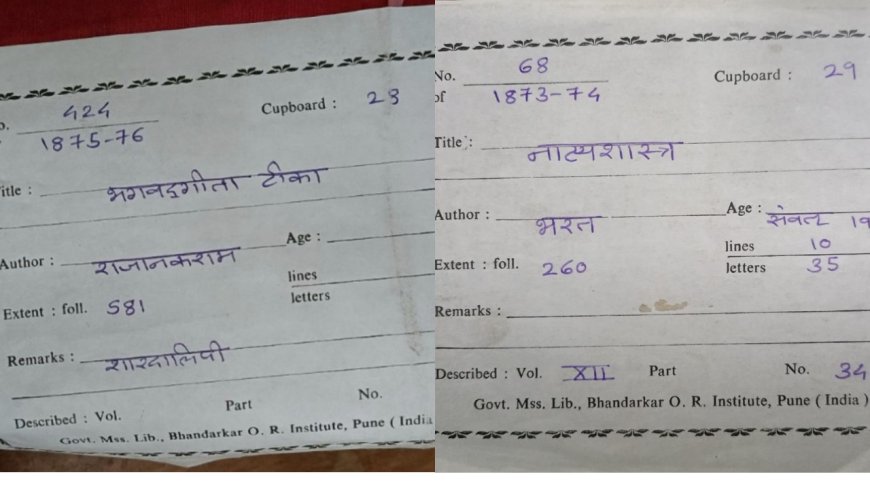 424
1875-76
Cupboard : 23
itle : भगवद्गीता टीका
Author : राजानकराम
Age :
Extent : foll. 581
lines
letters
Remarks : शारदालिपी
Described : Vol. Part No.
Govt. Mss. Lib., Bhandarkar O. R. Institute, Pune ( India
No. 68
of 1873-74
Cupboard : 29
Title : नाट्यशास्त्र
Author : भरत
Age : संवत् 19
Extent : foll. 260
lines 10
letters 35
Remarks :
Described : Vol. XII Part No. 34
Govt. Mss. Lib., Bhandarkar O. R. Institute, Pune ( India )